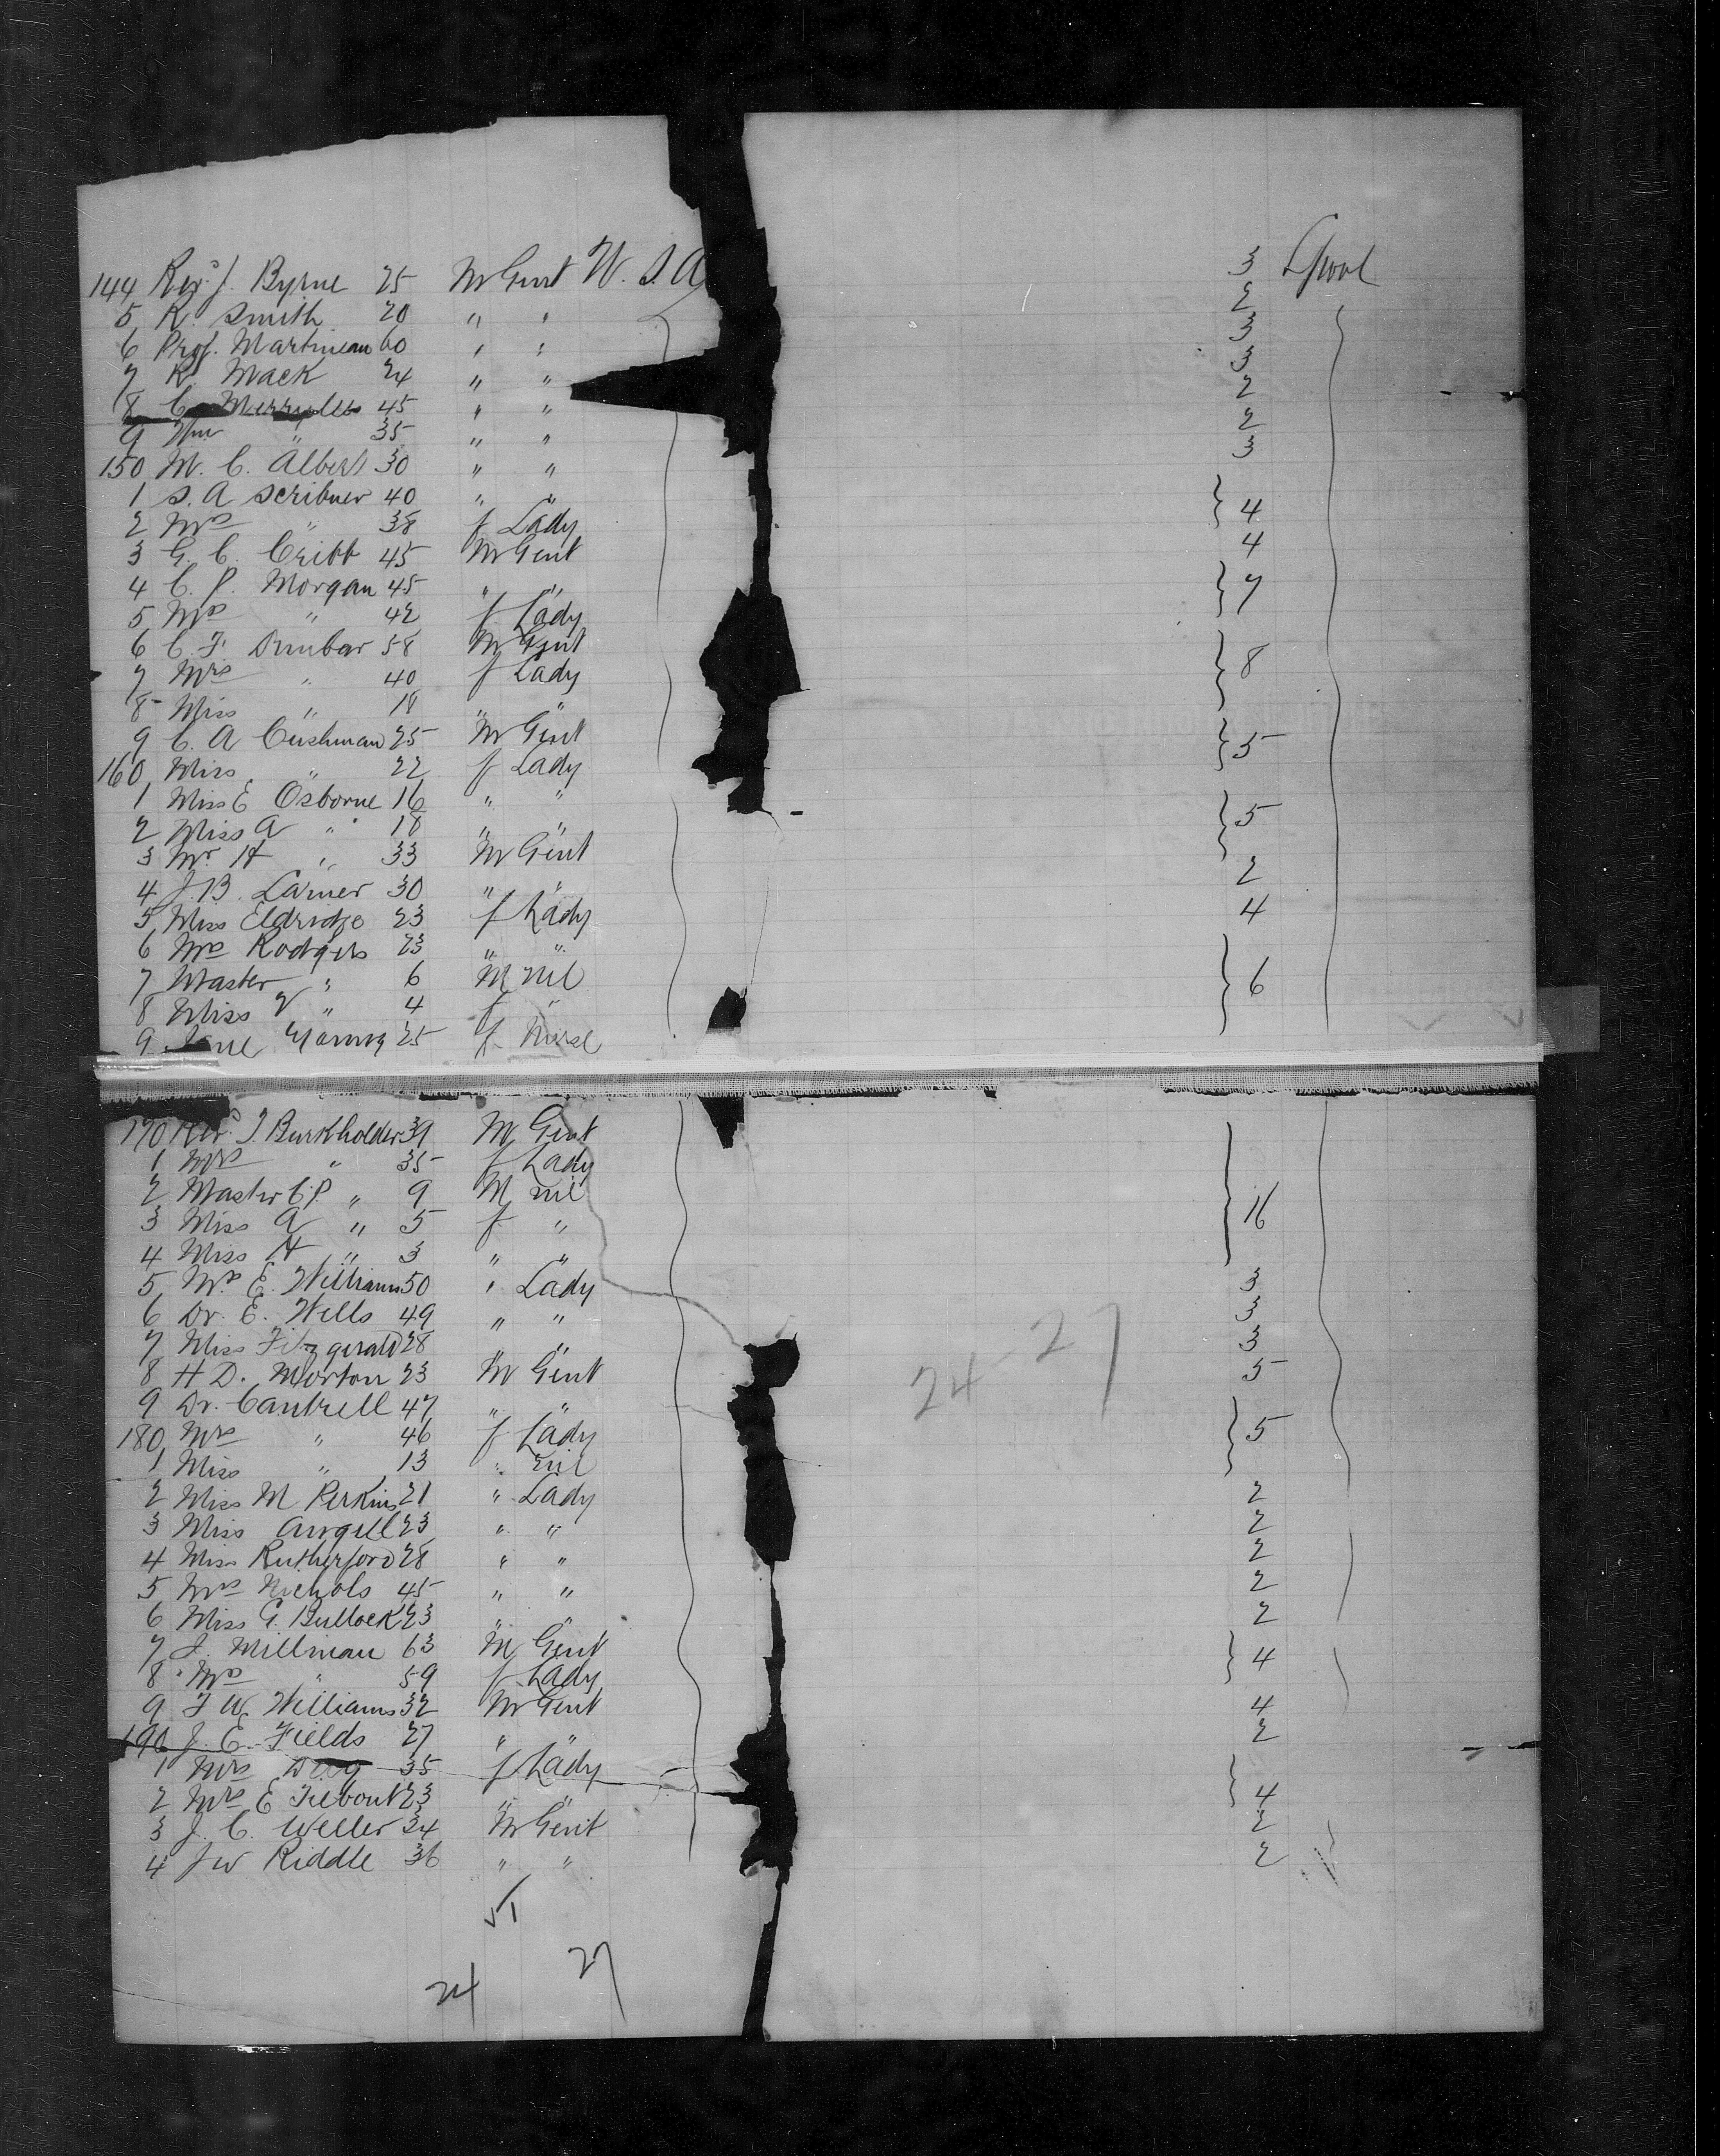 144 Rev. J. Byrne 25 M Gent U. S. A 3 L'pool
5 R. Smith 20 " " 2
6 Prof. Martineau 60 " " 3
7 R. Mack 24 " " 3
8 C. Merryles 45 " " 2
9 Wm " 35 " " 2
150 M. C. Albert 30 " " 3
1 S. A Scribner 40 " "
2 Mrs " 38 f Lady } 4
3 G. C. Cribb 45 M Gent 4
4 C. P. Morgan 45 " "
5 Mrs " 42 f Lady } 7
6 C. F. Dunbar 58 M Gent
7 Mrs " 40 f Lady } 8
8 Miss " 18 " "
9 C. A Cushman 25 M Gent
160 Miss " 22 f Lady } 5
1 Miss E Osborne 16 " "
2 Miss A " 18 " " } 5
3 Mr. H " 33 M Gent
4 J. B. Larner 30 " " 2
5 Miss Eldridge 23 f Lady 4
6 Mrs Rodgers 23 " "
7 Master " 6 M nil } 6
8 Miss " 4 f "
9 Jane Young 25 f Nurse
170 Rev. J. Burkholder 39 M Gent
1 Mrs " 35 f Lady
2 Master C. P. " 9 M nil
3 Miss A " 5 f " } 16
4 Miss H " 3 " "
5 Mrs E. Williams 50 " Lady 3
6 Dr. E. Wells 49 " " 3
7 Miss Fitzgerald 28 " " 3
8 H D. Morton 23 M Gent 5
9 Dr. Cantrell 47 " "
180 Mrs " 46 f Lady } 5
1 Miss " 13 " nil
2 Miss M Perkins 21 " Lady 2
3 Miss 23 " " 2
4 Miss Rutherford 28 " " 2
5 Mrs Nichols 45 " " 2
6 Miss G. Bullock 23 " " 2
7 J. Millman 63 M Gent
8 Mrs " 59 f Lady } 4
9 F W. Williams 32 M Gent 4
190 J. E. Fields 27 " " 2
1 Mrs 35 f Lady
2 Mrs E Tiebout 23 " " } 4
3 J. C. Weller 34 M Gent 2
4 J W Riddle 36 " " 2
24 27
51
24 27